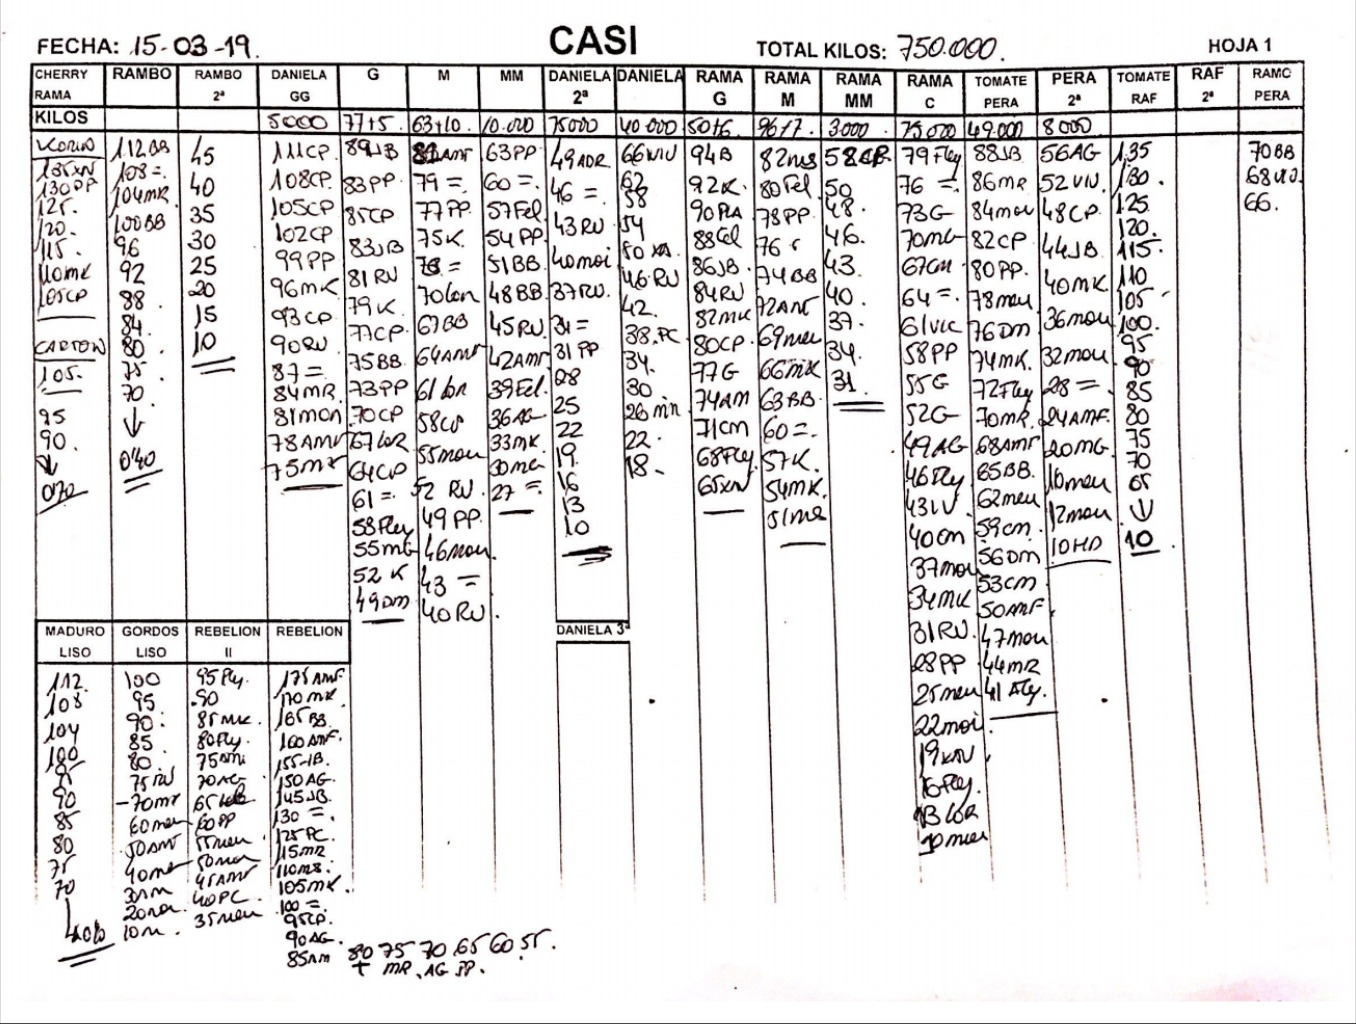 FECHA: 15-03-19.
CASI
TOTAL KILOS: 750.000.
HOJA 1
CHERRY RAMA
RAMBO
RAMBO 2ª
DANIELA GG
G
M
MM
DANIELA 2ª
DANIELA
RAMA G
RAMA M
RAMA MM
RAMA C
TOMATE PERA
PERA 2ª
TOMATE RAF
RAF 2ª
RAMO PERA
KILOS
5000
77+5.
63+10.
10.000
75000
40.000
50+6.
96+7.
3.000
75.000
49.000
8000
130PP
125.
120.
115.
110MK
105CP
CARTON
105.
95
90.
↓
0'70
112BB
108=.
104MR
100BB
96
92
88.
84.
80.
75.
70.
↓
0'40
45
40
35
30
25
20
15
10
111CP.
108CP.
105CP
102CP
99PP
96MK
93CP
90RU
87=
84MR.
81mon
78AMF
75MK
89JB
83PP
85CP
83JB
81RU
79K
77CP.
75BB
73PP
70CP
67LOR
64CP
61=.
58Fly
55MG
52 K
49DM
79=.
77PP.
75K
67BB
64AMF
61LOR
55mou
52 RU.
49PP.
46mou.
43 =
40RU
63PP
60=.
57Fel
54PP
51BB.
48BB.
45RU
42AMF
39Fel.
36AG
33MK
30MG
27 =.
49ADR.
46=.
43RU
40moi
37RU.
31PP
28
25
22
19.
16
13
10
62
58
54
46RU
42.
38.PC
34.
30
22.
18.
94B
92K.
88Fel
86JB.
84RU
82MK
80CP
77G
74AM
71CM
68Fly
65XN
80Fel
78PP.
74BB
72AMF
69mou
66MK
63BB
60=.
57K.
54MK.
58CP
50
48.
46.
43.
40.
37.
34.
31
79Fly
76=.
73G
70MG
67CM
64=.
58PP
55G
52G
49AG
46Fly
40CM
37mou
34MK
31RU.
28PP
25mou
22moi
16Fly.
13LOR
10mou
88JB.
86MR
84mou
82CP
80PP.
78mou
76DM
74MK.
72Fly
70MR.
68AMF
65BB.
62mou
59CM.
56DM
53CM
50AMF
47mou
44MR
41Fly.
56AG
48CP.
44JB
40MK
36mou
32mou
28=.
24AMF.
20MG
16mou
12mou
10HD
135
130
125.
120.
115.
110
105
100.
95
90
85
80
75
70
65
↓
10
70BB
66.
MADURO LISO
GORDOS LISO
REBELION II
REBELION
DANIELA 3ª
112.
108
104
100
95
90
85
80
75
70
100
95
90.
85
80
75RU
70MR
60mou
50AMF
95Fly.
90
85MK.
80Fly.
70AG
60PP
55mou
45AMF
40PC
35mou
175AMF
170MK
165BB
160AMF.
155JB.
150AG.
145JB.
130 =.
125PC.
115MR
105MK.
100=.
95CP.
90AG.
85AM
80 75 70 65 60 55.
+ MR. AG PP.